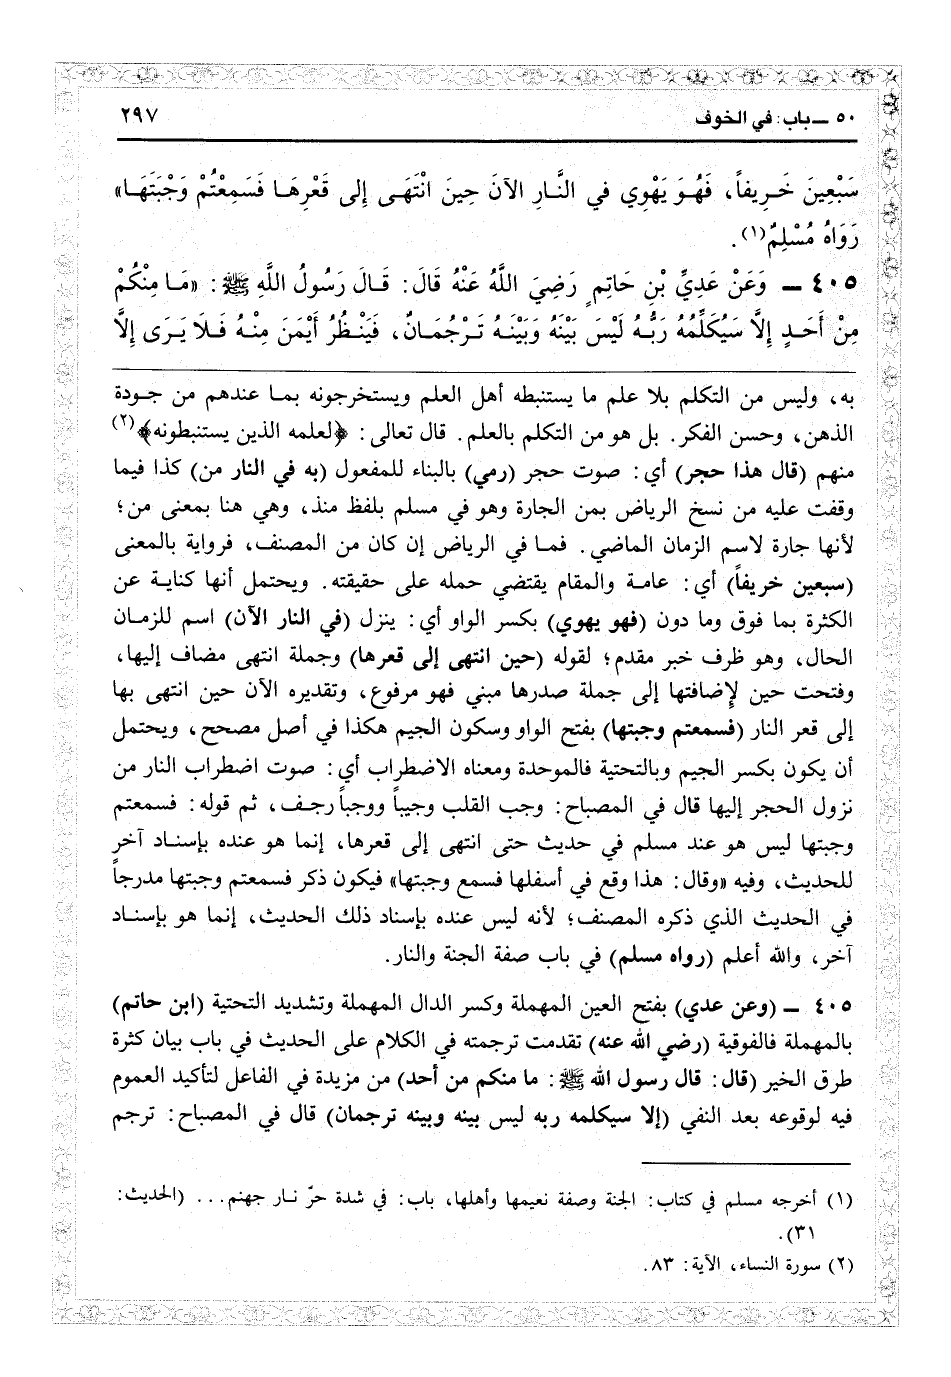 ٥٠ ــ باب: في الخوف ٢٩٧
سَبْعِينَ خَرِيفاً، فَهُوَ يَهْوِي في النَّارِ الآنَ حِينَ انْتَهَى إلى قَعْرِهَا فَسَمِعْتُمْ وَجْبَتَهَا»
رَوَاهُ مُسْلِمٌ(١).
٤٠٥ ــ وَعَنْ عَدِيِّ بْنِ حَاتِمٍ رَضِيَ اللَّهُ عَنْهُ قَالَ: قَالَ رَسُولُ اللَّهِ ﷺ: «مَا مِنْكُمْ
مِنْ أَحَدٍ إلَّا سَيُكَلِّمُهُ رَبُّهُ لَيْسَ بَيْنَهُ وَبَيْنَهُ تَرْجُمَانٌ، فَيَنْظُرُ أَيْمَنَ مِنْهُ فَلَا يَرَى إلَّا
به، وليس من التكلم بلا علم ما يستنبطه أهل العلم ويستخرجونه بما عندهم من جودة
الذهن، وحسن الفكر. بل هو من التكلم بالعلم. قال تعالى: ﴿لعلمه الذين يستنبطونه﴾(٢)
منهم (قال هذا حجر) أي: صوت حجر (رمي) بالبناء للمفعول (به في النار من) كذا فيما
وقفت عليه من نسخ الرياض بمن الجارة وهو في مسلم بلفظ منذ، وهي هنا بمعنى من؛
لأنها جارة لاسم الزمان الماضي. فما في الرياض إن كان من المصنف، فرواية بالمعنى
(سبعين خريفاً) أي: عامة والمقام يقتضي حمله على حقيقته. ويحتمل أنها كناية عن
الكثرة بما فوق وما دون (فهو يهوي) بكسر الواو أي: ينزل (في النار الآن) اسم للزمان
الحال، وهو ظرف خبر مقدم؛ لقوله (حين انتهى إلى قعرها) وجملة انتهى مضاف إليها،
وفتحت حين لإضافتها إلى جملة صدرها مبني فهو مرفوع، وتقديره الآن حين انتهى بها
إلى قعر النار (فسمعتم وجبتها) بفتح الواو وسكون الجيم هكذا في أصل مصحح، ويحتمل
أن يكون بكسر الجيم وبالتحتية فالموحدة ومعناه الاضطراب أي: صوت اضطراب النار من
نزول الحجر إليها قال في المصباح: وجب القلب وجيباً ووجباً رجف، ثم قوله: فسمعتم
وجبتها ليس هو عند مسلم في حديث حتى انتهى إلى قعرها، إنما هو عنده بإسناد آخر
للحديث، وفيه «وقال: هذا وقع في أسفلها فسمع وجبتها» فيكون ذكر فسمعتم وجبتها مدرجاً
في الحديث الذي ذكره المصنف؛ لأنه ليس عنده بإسناد ذلك الحديث، إنما هو بإسناد
آخر، والله أعلم (رواه مسلم) في باب صفة الجنة والنار.
٤٠٥ ــ (وعن عدي) بفتح العين المهملة وكسر الدال المهملة وتشديد التحتية (ابن حاتم)
بالمهملة فالفوقية (رضي الله عنه) تقدمت ترجمته في الكلام على الحديث في باب بيان كثرة
طرق الخير (قال: قال رسول الله ﷺ: ما منكم من أحد) من مزيدة في الفاعل لتأكيد العموم
فيه لوقوعه بعد النفي (إلا سيكلمه ربه ليس بينه وبينه ترجمان) قال في المصباح: ترجم
(١) أخرجه مسلم في كتاب: الجنة وصفة نعيمها وأهلها، باب: في شدة حرّ نار جهنم... (الحديث:
٣١).
(٢) سورة النساء، الآية: ٨٣.